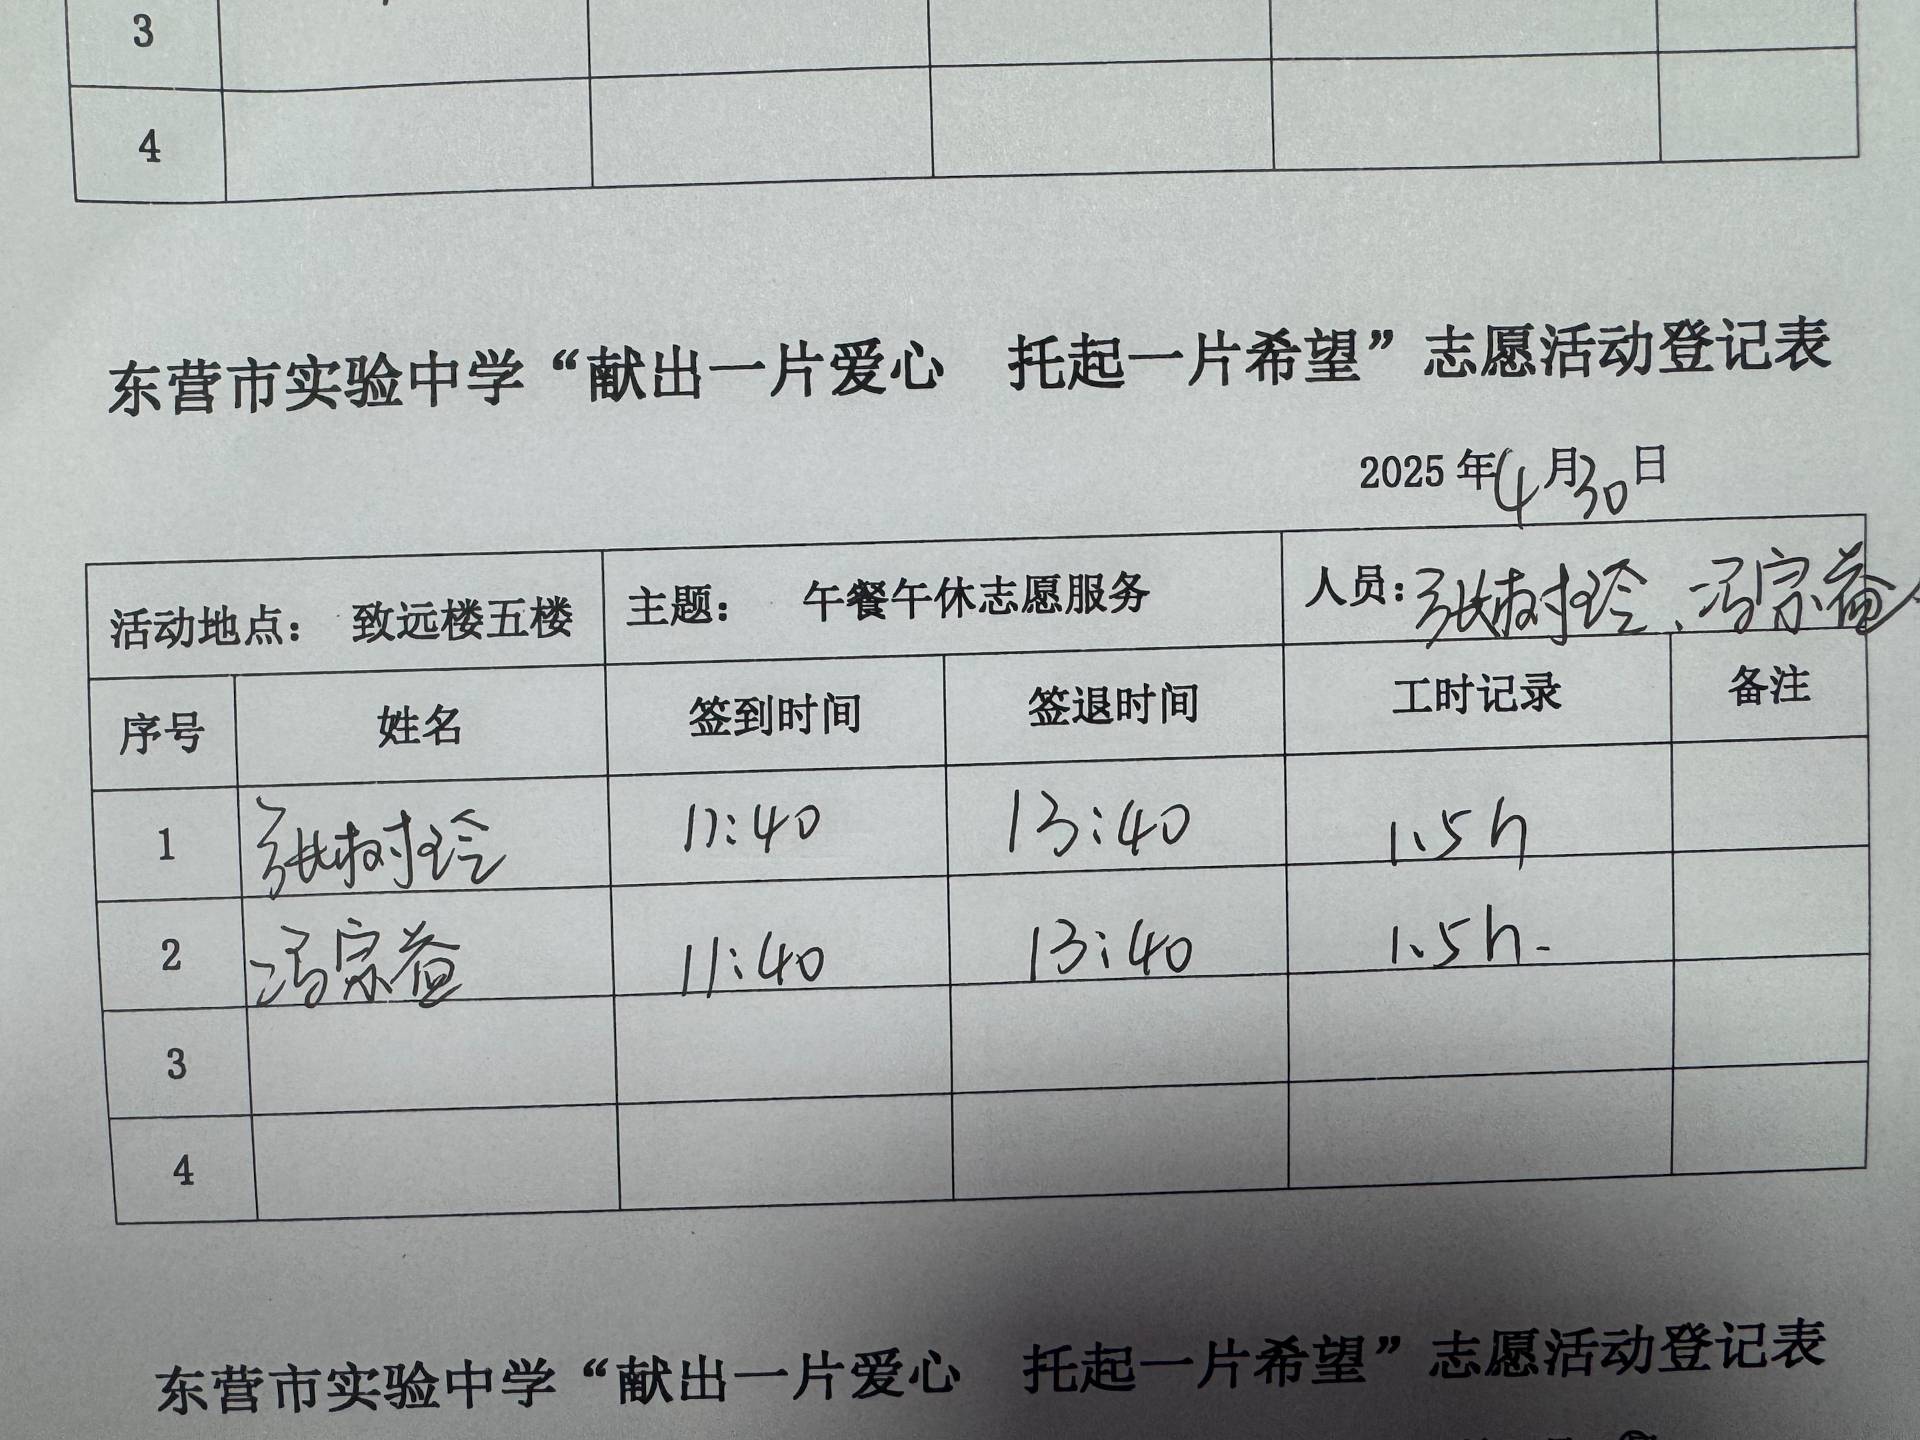 3
4
东营市实验中学“献出一片爱心 托起一片希望”志愿活动登记表
2025年4月30日
活动地点： 致远楼五楼 主题： 午餐午休志愿服务 人员：张树玲、冯宗益
序号 姓名 签到时间 签退时间 工时记录 备注
1 张树玲 11:40 13:40 1.5h
2 冯宗益 11:40 13:40 1.5h.
3
4
东营市实验中学“献出一片爱心 托起一片希望”志愿活动登记表